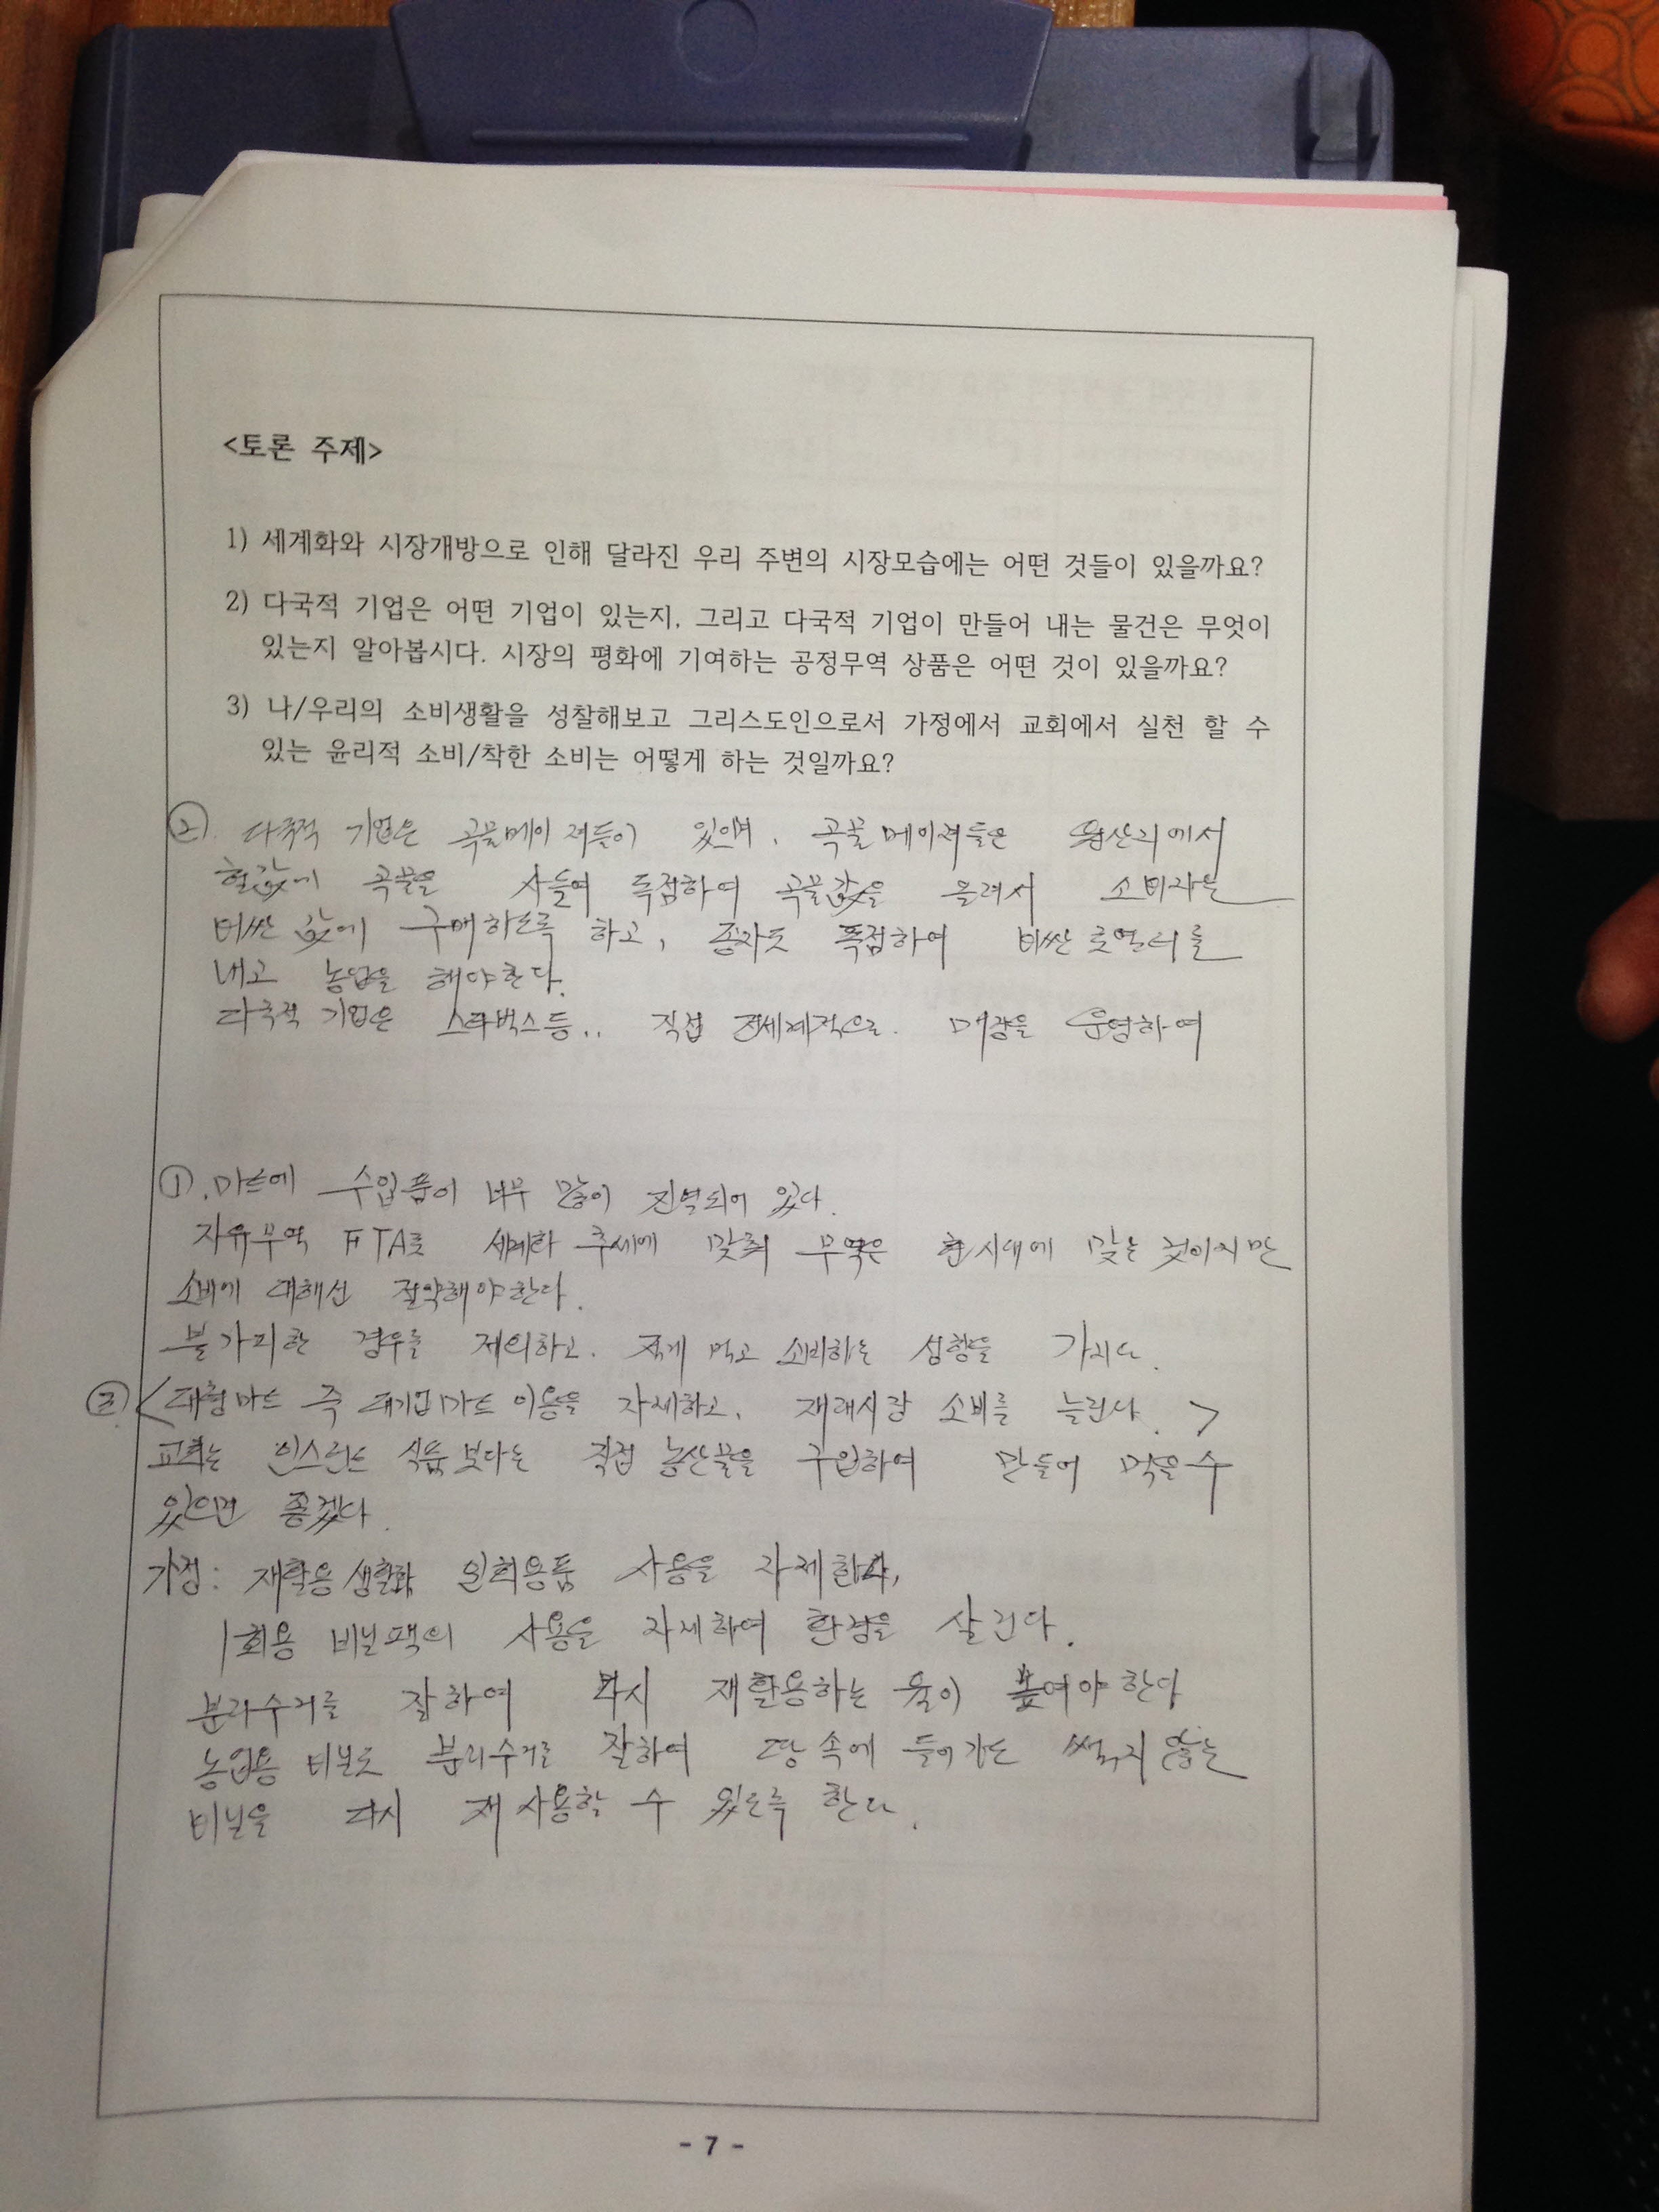 <토론 주제>
1) 세계화와 시장개방으로 인해 달라진 우리 주변의 시장모습에는 어떤 것들이 있을까요?
2) 다국적 기업은 어떤 기업이 있는지, 그리고 다국적 기업이 만들어 내는 물건은 무엇이
있는지 알아봅시다. 시장의 평화에 기여하는 공정무역 상품은 어떤 것이 있을까요?
3) 나/우리의 소비생활을 성찰해보고 그리스도인으로서 가정에서 교회에서 실천 할 수
있는 윤리적 소비/착한 소비는 어떻게 하는 것일까요?
②. 다국적 기업은 곡물메이져들이 있으며, 곡물메이져들은 에서
헐값에 곡물을 사들여 독점하여 곡물값을 올려서 소비자는
비싼 값에 구매하도록 하고, 종자도 독점하여 비싼 로열티를
내고 농업을 해야한다.
다국적 기업은 스타벅스등.. 직접 전세계적으로 매장을 운영하여
①. 마트에 수입품이 너무 많이 진열되어 있다.
자유무역 FTA로 세계화 추세에 맞춰 무역은 현시대에 맞는 것이지만
소비에 대해선 절약해야한다.
불가피한 경우를 제외하고. 적게 먹고 소비하는 성향을 가지다.
③ <대형마트 즉 대기업마트 이용을 자제하고, 재래시장 소비를 늘린다.>
교회는 인스턴트 식품보다는 직접 농산물을 구입하여 만들어 먹을 수
있으면 좋겠다.
가정: 재활용 생활화 일회용품 사용을 자제
1회용 비닐팩의 사용을 자제하여 환경을 살린다.
분리수거를 잘하여 다시 재활용하는 율이 높여야 한다
농업용 비닐도 분리수거를 잘하여 땅 속에 들어가도 썩지 않는
비닐을 다시 재사용할 수 있도록 한다.
- 7 -